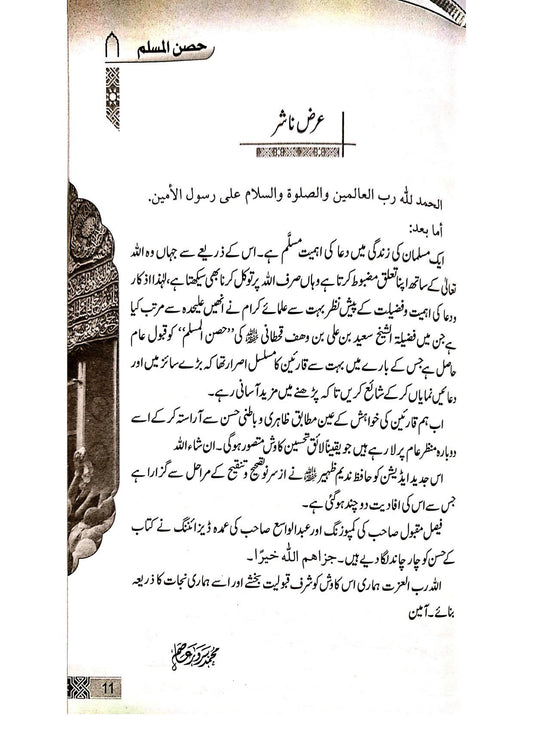 حصن المسلم
عرض ناشر
الحمد لله رب العالمين والصلوة والسلام على رسول الأمين.
أما بعد:
ایک مسلمان کی زندگی میں دعا کی اہمیت مسلَّم ہے۔ اس کے ذریعے سے جہاں وہ اللہ
تعالیٰ کے ساتھ اپنا تعلق مضبوط کرتا ہے وہاں صرف اللہ پر توکل کرنا بھی سیکھتا ہے، لہٰذا اذکار
و دعا کی اہمیت و فضیلت کے پیش نظر بہت سے علمائے کرام نے انھیں علیحدہ سے مرتب کیا
ہے جن میں فضیلۃ الشیخ سعید بن علی بن وھف قحطانی ﷾ کی ’’حصن المسلم‘‘ کو قبول عام
حاصل ہے جس کے بارے میں بہت سے قارئین کا مسلسل اصرار تھا کہ بڑے سائز میں اور
دعائیں نمایاں کر کے شائع کریں تا کہ پڑھنے میں مزید آسانی رہے۔
اب ہم قارئین کی خواہش کے عین مطابق ظاہری و باطنی حسن سے آراستہ کر کے اسے
دوبارہ منظر عام پر لا رہے ہیں جو یقیناً لائق تحسین کاوش متصور ہوگی۔ ان شاء اللہ
اس جدید ایڈیشن کو حافظ ندیم ظہیر ﷾ نے از سر نو تصحیح و تنقیح کے مراحل سے گزارا ہے
جس سے اس کی افادیت دو چند ہوگئی ہے۔
فیصل مقبول صاحب کی کمپوزنگ اور عبدالواسع صاحب کی عمدہ ڈیزائننگ نے کتاب
کے حسن کو چار چاند لگا دیے ہیں۔ جزاهم الله خيرًا۔
اللہ رب العزت ہماری اس کاوش کو شرف قبولیت بخشے اور اسے ہماری نجات کا ذریعہ
بنائے۔ آمین
محمد سرور عاصم
11